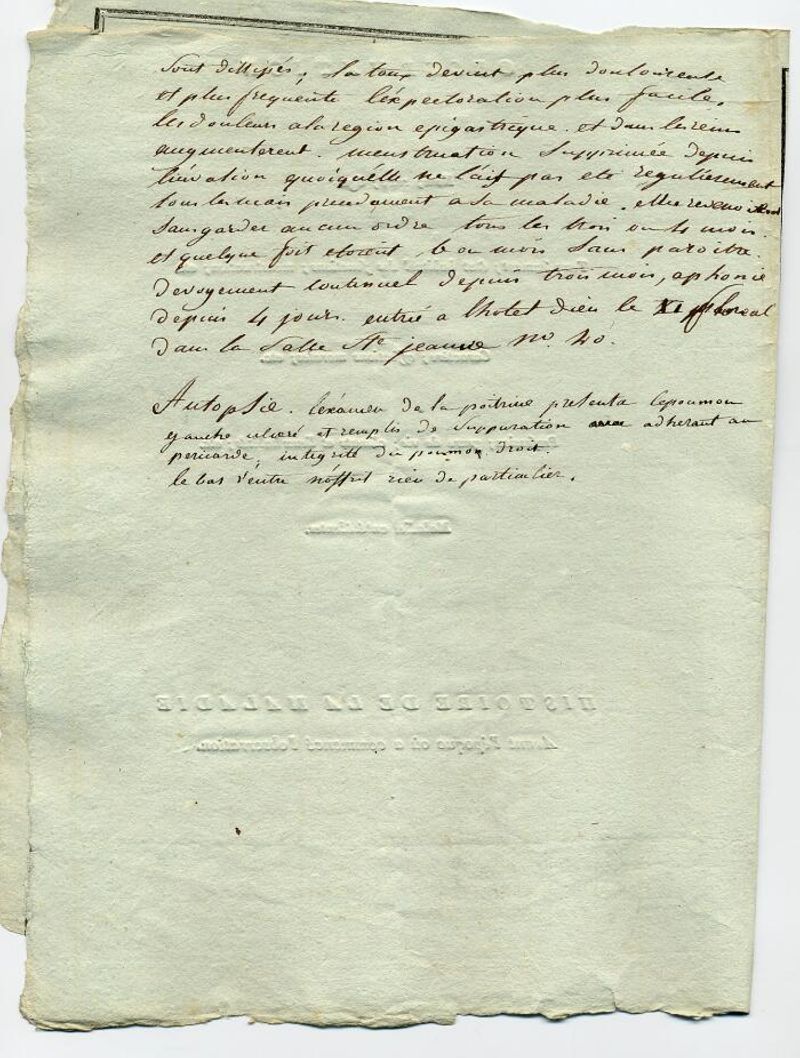 Sont dissipés; la toux devient plus douloureuse
et plus frequente l'expectoration plus facile,
les douleurs a la region epigastrique. et dans les reins
augmenterent. menstruation supprimée depuis
quoiquelle ne lait pas eté regulierement
tous les mois precedament a sa maladie. elle
sans garder aucun ordre tous les trois ou 4 mois.
et quelque fois etoient 6 ou mois sans paroitre.
Devoyement continuel depuis trois mois, aphonie
depuis 4 jours. entrée a l'hotel dieu le XI floreal
dans la Salle Ste jeanne no. 40.
Autopsie. l'examen de la poitrine presenta le poumon
gauche ulceré et remplis de suppuration adherant au
pericarde; integrité du poumon droit.
le bas ventre n'offrit rien de particulier.
HISTOIRE DE LA MALADIE
Avant l'époque où a commencé l'observation.